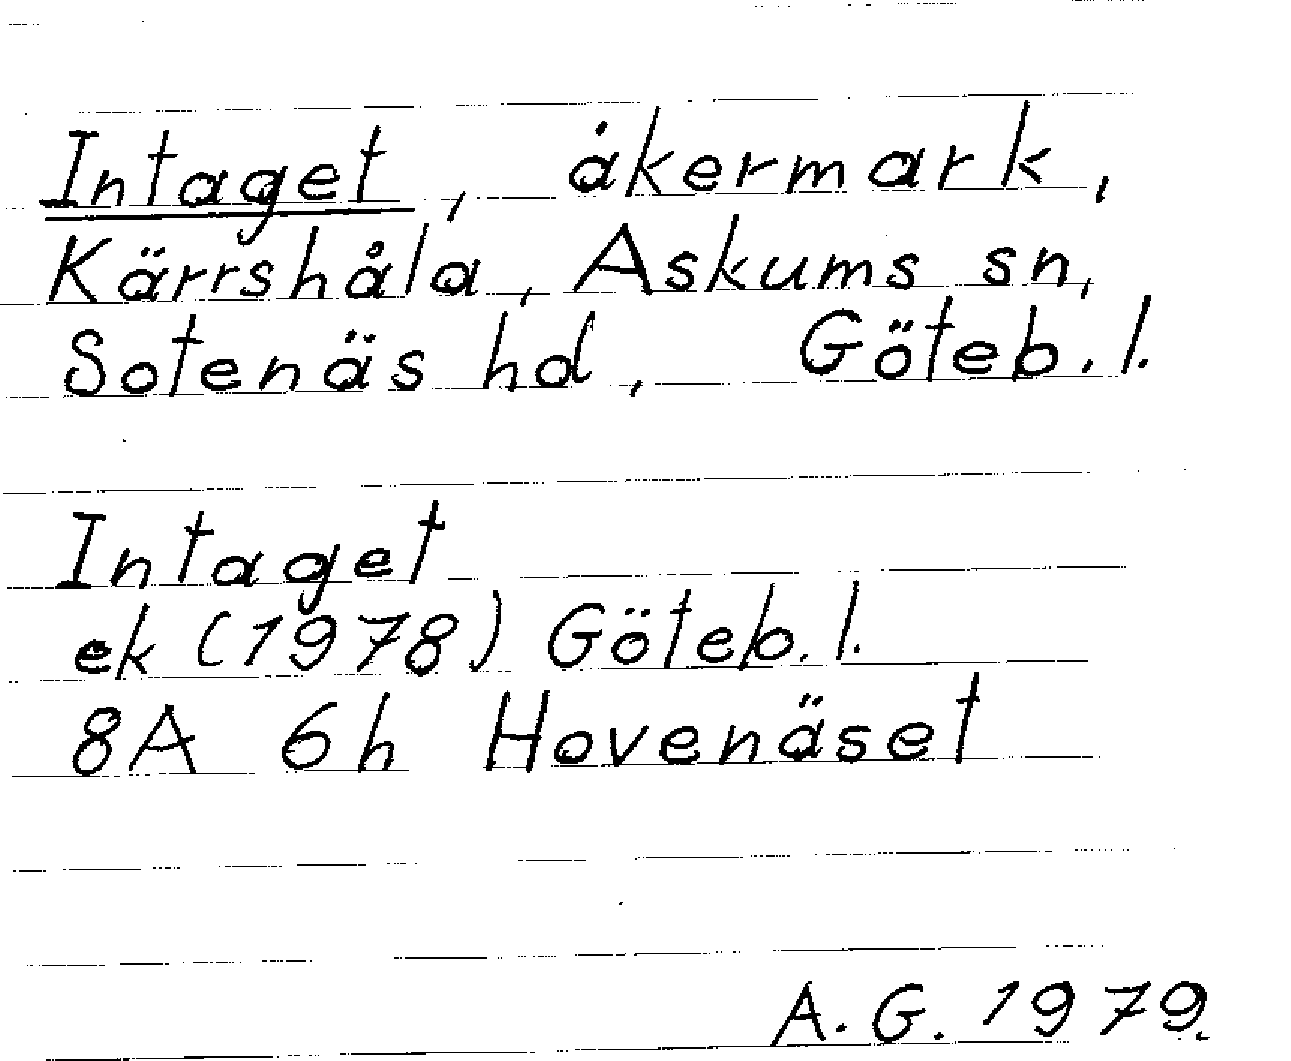 Intaget, åkermark,
Kärrshåla, Askums sn,
Sotenäs hd, Göteb. l.
Intaget
ek (1978) Göteb. l.
8A 6h Hovenäset
A. G. 1979.